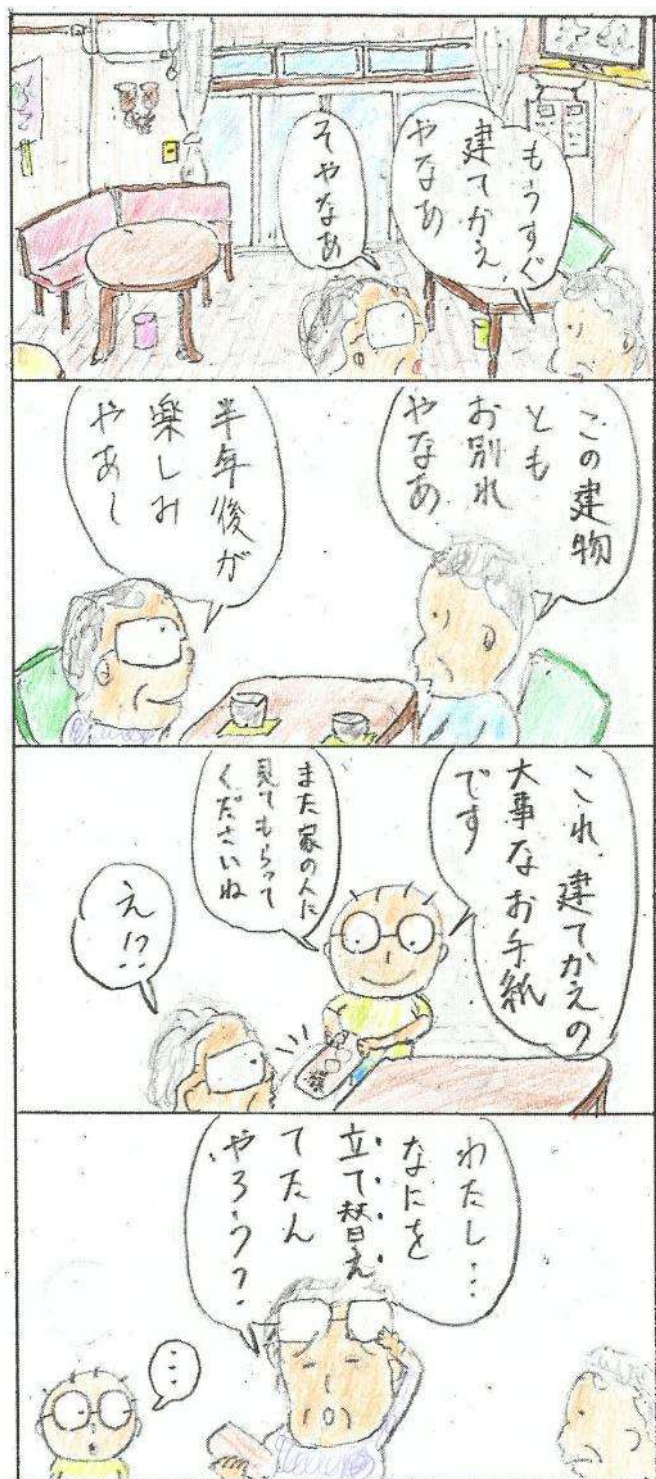 もうすぐ
建てかえ
やなあ
そやなあ
この建物
とも
お別れ
やなあ
半年後が
楽しみ
やあ〜
これ、建てかえの
大事なお手紙
です
また家の人に
見てもらって
くださいね
え!?
わたし…
なにを
立て替え
てたん
やろう?
…